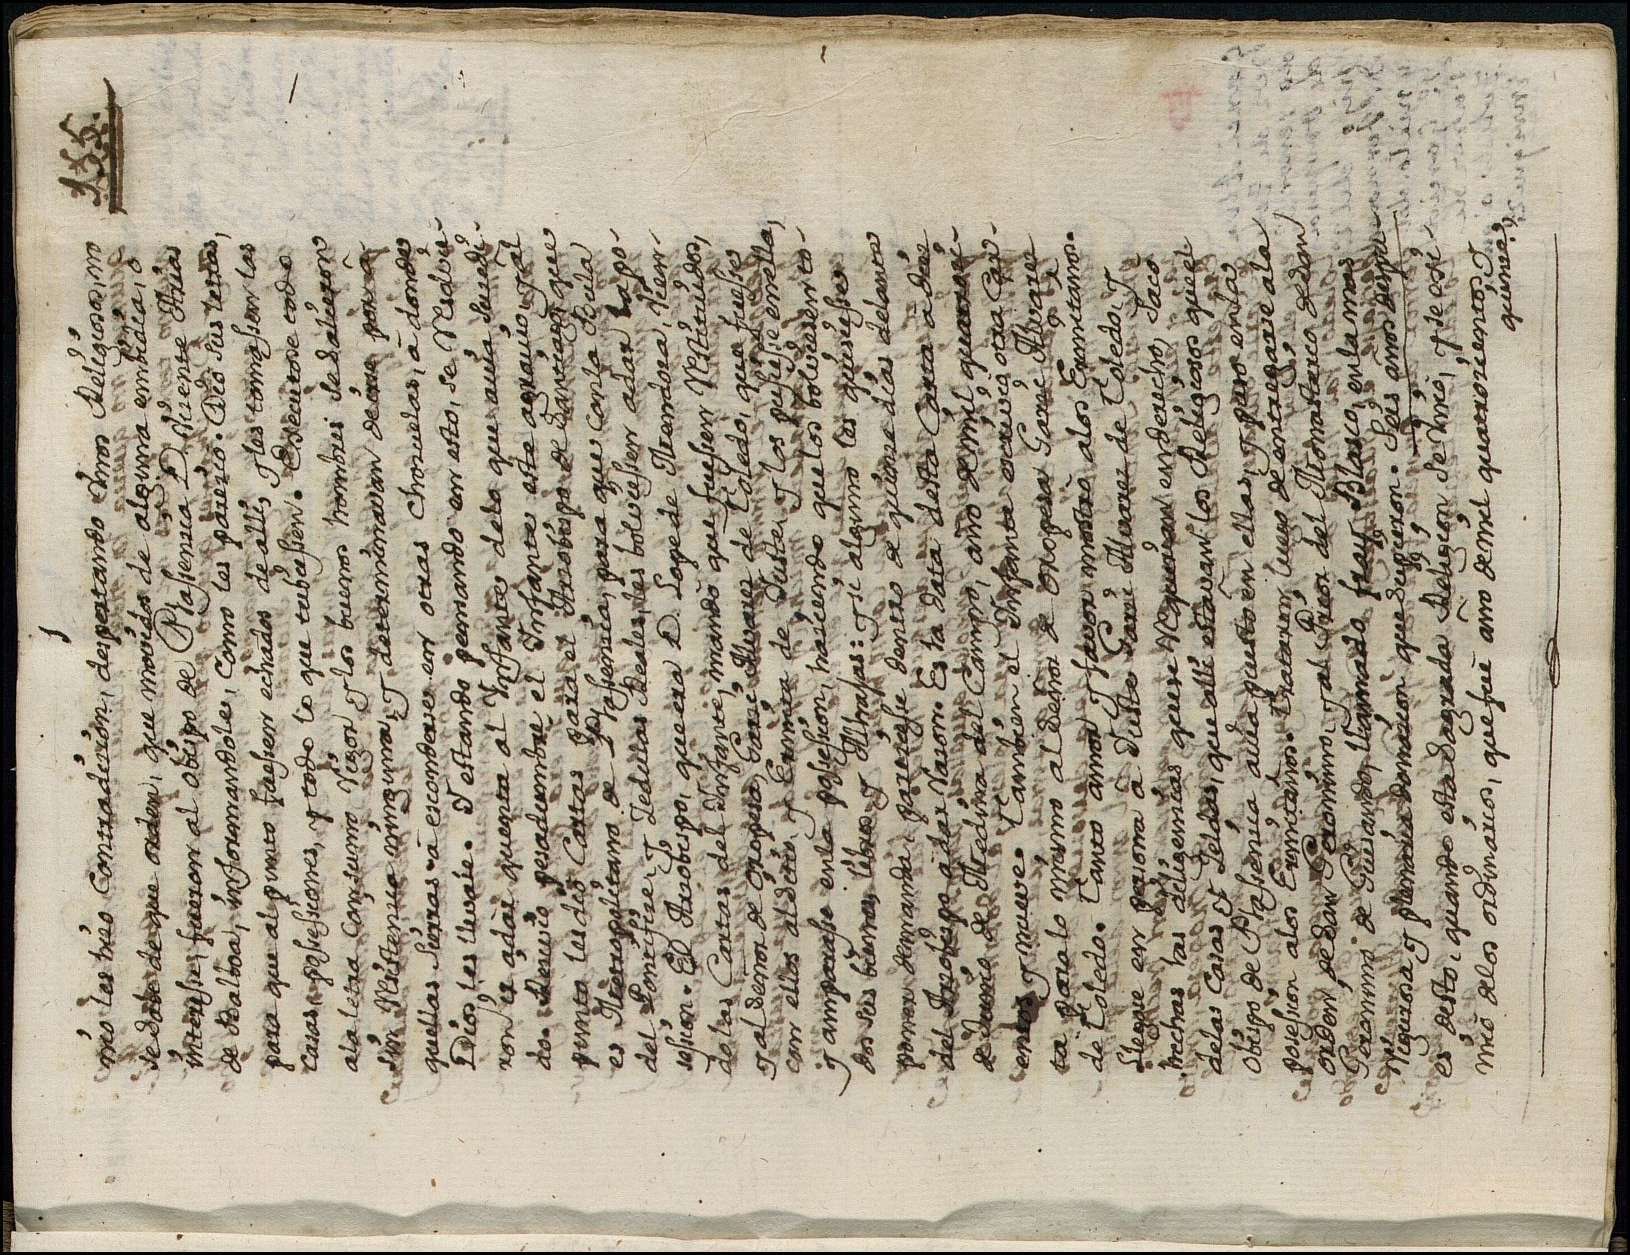 155.
mió las hizo Contradición, despertando ótros Religiosos, no
se sabe de que orden, que movidos de alguna embidia, ó
interesse, fueron al Obispo de Plasencia D. Vicente Arias
de Balboa, informandoles, como les pareció. Dió sus letras,
para que al punto fuessen echados de allí, y les tomassen las
casas, possessiones, y todo lo que tubiessen. Executose todo
ala letra Con sumo rigor, y los buenos hombres se salieron
sin resistencia ninguna, y determinavan de irse por a-
quellas sierras à esconderse en otras Chozuelas, à donde
Dios les llevase. Y estando pensando en esto, se resolvie-
ron ir à dar quenta al Infante delo que avia sucedi-
do. Sintio pesadumbre el Infante este agravio, y al
punto les dió Cartas para el Arzobispo de Santiago que
es Metropolitano de Plasencia, para que con la Bula
del Pontifice, y Cedulas Reales, les bolviessen adar la po-
session. El Arzobispo, que era D. Lope de Mendoza, vien-
do las Cartas del Infante, mandó que fuessen restituidos,
y al Señor de Oropesa, Garci Alvarez de Toledo, que fuesse
con ellos al dicho, y Ermita de Yuste, y los pusiesse en ella,
y amparasse en la possession, haciendo que los bolviessen to-
dos sus bienes, libros y Alhajas: y si alguno les quisiesse
poner demanda, pareciesse dentro de quince dias delante
del Arzobispo à dar razon. Es la data desta Carta à diez
de Junio de Medina del Campo, año de mil quatroci-
entos y nueve. Tambien el Infante escrivió otra Car-
ta para lo mismo al Señor de Oropesa Garci Alvarez
de Toledo. Tanto amor y favor mostró alos Ermitaños.
Llegose en persona à Yuste Garci Alvarez de Toledo, y
hechas las diligencias que se requerian en derecho, sacó
delas Casas y Celdas, que alli estavan los Religiosos que el
Obispo de Plasencia avia puesto en ellas, y puso en la
posesion alos Ermitaños. Trataron luego de entregarse ala
orden de San Geronimo, y al Prior del Monasterio de San
Geronimo de Guisando, llamado fray Blasco, en la mas
rigurosa y plenaria donacion que supieron. Seis años despu-
es desto, quando esta Sagrada Religion se unió, y se exi-
mió delos ordinarios, que fue año de mil quatrocientos y
quince.